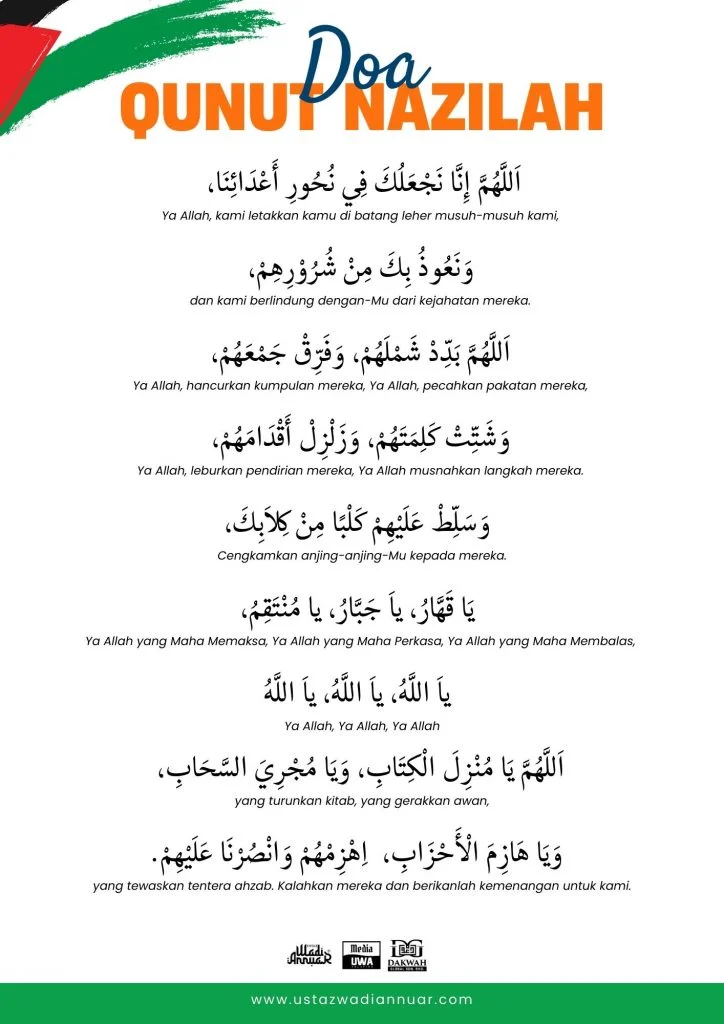 Doa
QUNUT NAZILAH
اَللَّهُمَّ إِنَّا نَجْعَلُكَ فِي نُحُورِ أَعْدَائِنَا،
Ya Allah, kami letakkan kamu di batang leher musuh-musuh kami,
وَنَعُوذُ بِكَ مِنْ شُرُوْرِهِمْ،
dan kami berlindung dengan-Mu dari kejahatan mereka.
اَللَّهُمَّ بَدِّدْ شَمْلَهُمْ، وَفَرِّقْ جَمْعَهُمْ،
Ya Allah, hancurkan kumpulan mereka, Ya Allah, pecahkan pakatan mereka,
وَشَتِّتْ كَلِمَتَهُمْ، وَزَلْزِلْ أَقْدَامَهُمْ،
Ya Allah, leburkan pendirian mereka, Ya Allah musnahkan langkah mereka.
وَسَلِّطْ عَلَيْهِمْ كَلْبًا مِنْ كِلاَبِكَ،
Cengkamkan anjing-anjing-Mu kepada mereka.
يَا قَهَّارُ، ياَ جَبَّارُ، يا مُنْتَقِمُ،
Ya Allah yang Maha Memaksa, Ya Allah yang Maha Perkasa, Ya Allah yang Maha Membalas,
ياَ اللَّهُ، ياَ اللَّهُ، ياَ اللَّهُ
Ya Allah, Ya Allah, Ya Allah
اَللَّهُمَّ يَا مُنْزِلَ الْكِتَابِ، وَيَا مُجْرِيَ السَّحَابِ،
yang turunkan kitab, yang gerakkan awan,
وَيَا هَازِمَ الْأَحْزَابِ، اِهْزِمْهُمْ وَانْصُرْنَا عَلَيْهِمْ.
yang tewaskan tentera ahzab. Kalahkan mereka dan berikanlah kemenangan untuk kami.
Wadi Annuar
Media
UWA
DAKWAH
GLOBAL SDN. BHD.
www.ustazwadiannuar.com